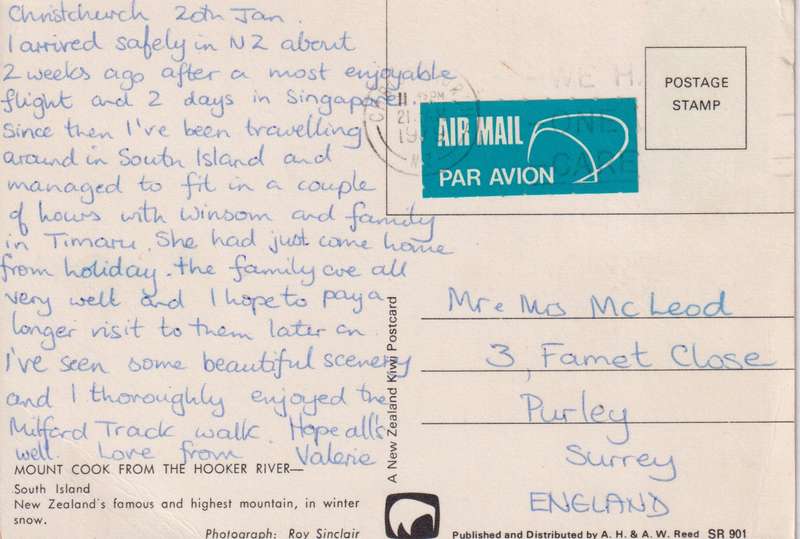 Christchurch 20th Jan.
I arrived safely in NZ about
2 weeks ago after a most enjoyable
flight and 2 days in Singapore
Since then I've been travelling
around in South Island and
managed to fit in a couple
of hours with Winsom and family
in Timaru. She had just come home
from holiday. the family are all
very well and I hope to pay a
longer visit to them later on
I've seen some beautiful scenery
and I thoroughly enjoyed the
Milford Track walk. Hope all's
well. Love from Valerie
MOUNT COOK FROM THE HOOKER RIVER—
South Island
New Zealand's famous and highest mountain, in winter
snow.
Photograph: Roy Sinclair
A New Zealand Kiwi Postcard
POSTAGE
STAMP
AIR MAIL
PAR AVION
Mr e Mrs McLeod
3, Famet Close
Purley
Surrey
ENGLAND
Published and Distributed by A. H. & A. W. Reed SR 901